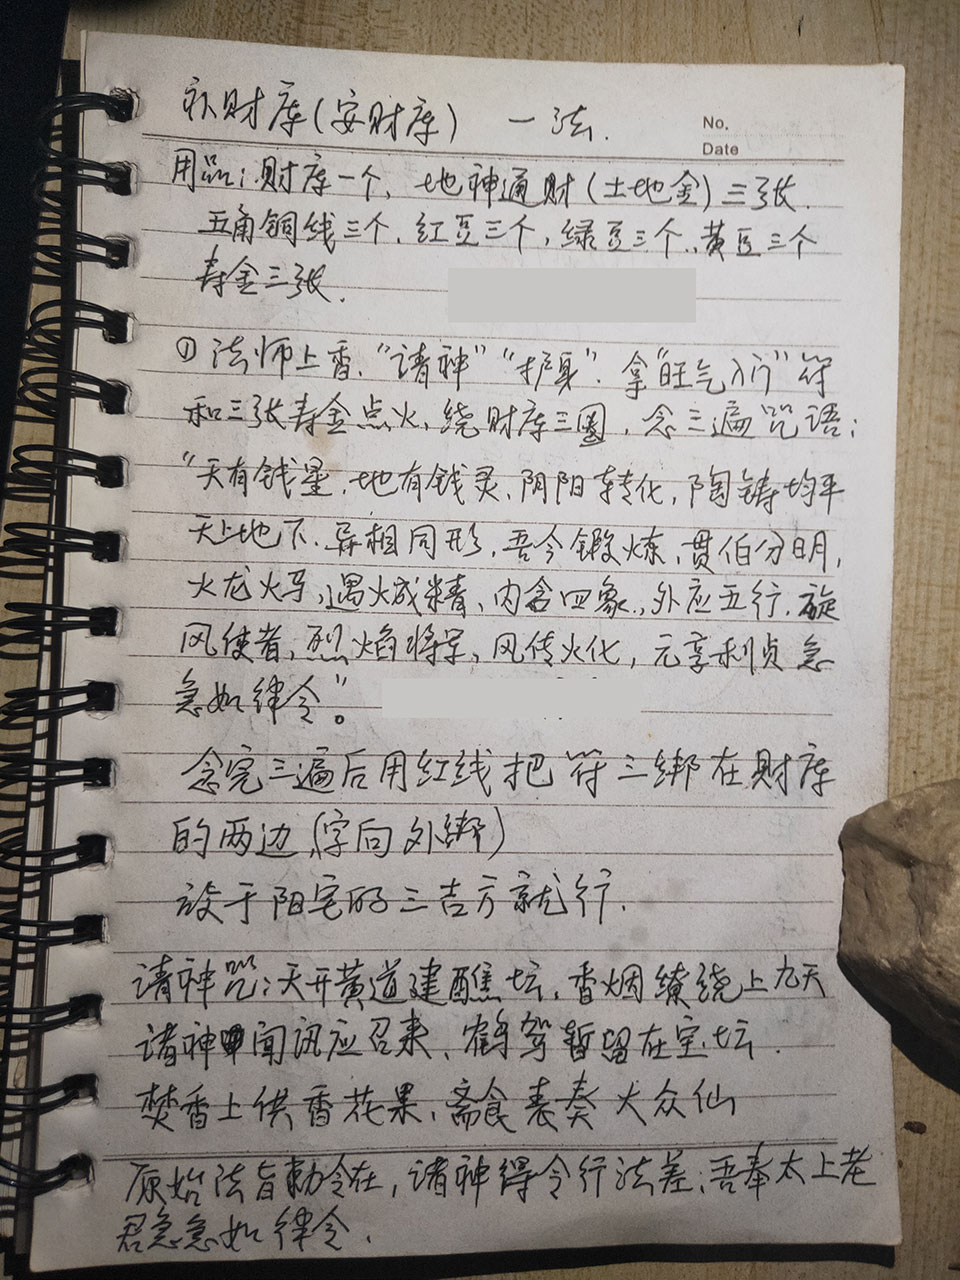 补财库(安财库) 一法.
No.
Date
用品:财库一个, 地神通财(土地金)三张.
五角铜线三个.红豆三个,绿豆三个,黄豆三个
寿金三张.
① 法师上香.“请神”“护身”.拿“旺气入门”符
和三张寿金点火,绕财库三圈,念三遍咒语:
“天有钱星.地有钱灵、阴阳转化,陶铸均平
天上地下.异相同形,吾今锻炼,贯伯分明,
火龙火马,遇火成精、内含四象,外应五行.旋
风使者,烈焰将军,风传火化,元亨利贞 急
急如律令”。
念完三遍后用红线把符三绑在财库
的两边,(字向外绑)
设于阳宅的三吉方就行.
请神咒:天开黄道建醮坛,香烟缭绕上九天
诸神闻讯应召来、鹤驾暂留在宝坛.
焚香上供香花果、斋食表奏大众仙
原始法旨勅令在,诸神得令行法差;吾奉太上老
君急急如律令.